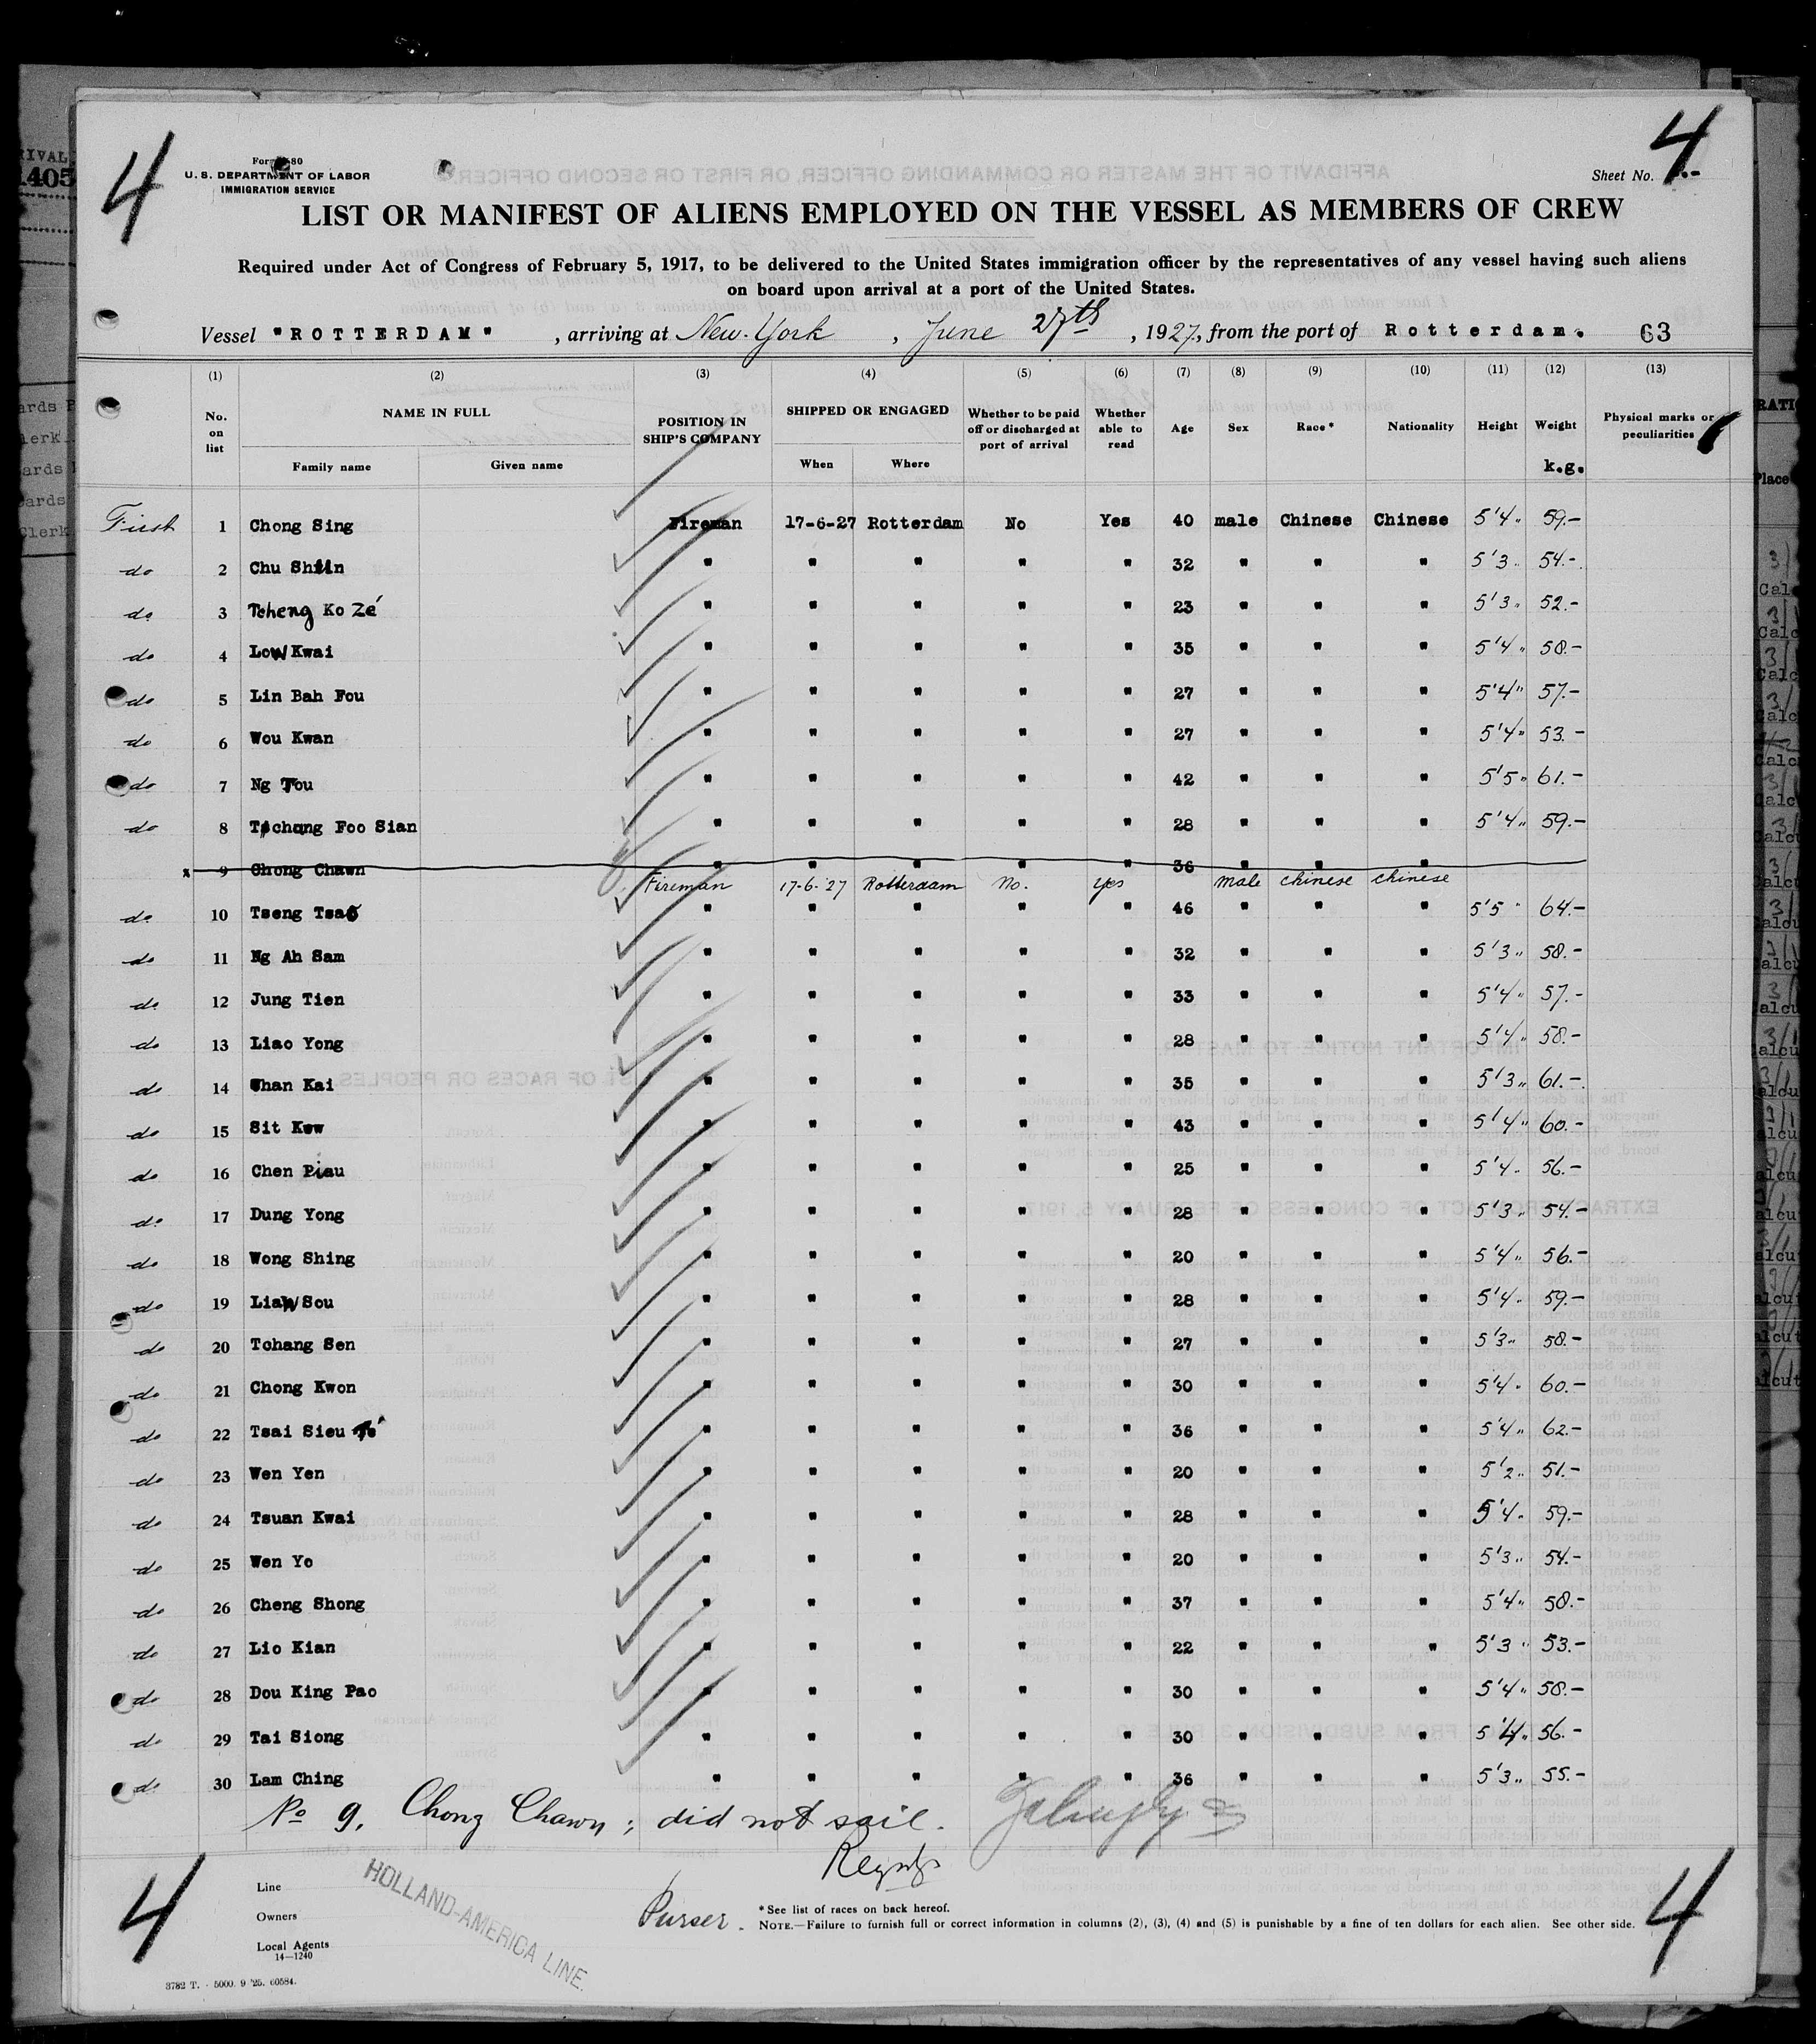 4
4.-
Form 680
U. S. DEPARTMENT OF LABOR
IMMIGRATION SERVICE
Sheet No.
LIST OR MANIFEST OF ALIENS EMPLOYED ON THE VESSEL AS MEMBERS OF CREW
Required under Act of Congress of February 5, 1917, to be delivered to the United States immigration officer by the representatives of any vessel having such aliens
on board upon arrival at a port of the United States.
Vessel "ROTTERDAM" , arriving at New-York , June 27th , 1927, from the port of Rotterdam. 63
(1) (2) (3) (4) (5) (6) (7) (8) (9) (10) (11) (12) (13)
No. on list NAME IN FULL Family name Given name POSITION IN SHIP'S COMPANY SHIPPED OR ENGAGED When Where Whether to be paid off or discharged at port of arrival Whether able to read Age Sex Race* Nationality Height Weight k.g. Physical marks or peculiarities
First 1 Chong Sing Fireman 17-6-27 Rotterdam No Yes 40 male Chinese Chinese 5'4" 59.-
do 2 Chu Shiin " " " " " 32 " " " 5'3" 54.-
do 3 Tcheng Ko Zé " " " " " 23 " " " 5'3" 52.-
do 4 Low Kwai " " " " " 35 " " " 5'4" 58.-
do 5 Lin Bah Fou " " " " " 27 " " " 5'4" 57.-
do 6 Wou Kwan " " " " " 27 " " " 5'4" 53.-
do 7 Ng Tou " " " " " 42 " " " 5'5" 61.-
do 8 Tschung Foo Sian " " " " " 28 " " " 5'4" 59.-
x 9 Chong Chawn " " " " " 36 " " "
Fireman 17-6-27 Rotterdam No. yes male chinese chinese
do 10 Tseng Tsao " " " " " 46 " " " 5'5" 64.-
do 11 Ng Ah Sam " " " " " 32 " " " 5'3" 58.-
do 12 Jung Tien " " " " " 33 " " " 5'4" 57.-
do 13 Liao Yong " " " " " 28 " " " 5'4" 58.-
do 14 Chan Kai " " " " " 35 " " " 5'3" 61.-
do 15 Sit Kow " " " " " 43 " " " 5'4" 60.-
do 16 Chen Piau " " " " " 25 " " " 5'4" 56.-
do 17 Dung Yong " " " " " 28 " " " 5'3" 54.-
do 18 Wong Shing " " " " " 20 " " " 5'4" 56.-
do 19 Liaw Sou " " " " " 28 " " " 5'4" 59.-
do 20 Tchang Sen " " " " " 27 " " " 5'3" 58.-
do 21 Chong Kwon " " " " " 30 " " " 5'4" 60.-
do 22 Tsai Sieu " " " " " 36 " " " 5'4" 62.-
do 23 Wen Yen " " " " " 20 " " " 5'2" 51.-
do 24 Tsuan Kwai " " " " " 28 " " " 5'4" 59.-
do 25 Wen Yo " " " " " 20 " " " 5'3" 54.-
do 26 Cheng Shong " " " " " 37 " " " 5'4" 58.-
do 27 Lio Kian " " " " " 22 " " " 5'3" 53.-
do 28 Dou King Pao " " " " " 30 " " " 5'4" 58.-
do 29 Tai Siong " " " " " 30 " " " 5'4" 56.-
do 30 Lam Ching " " " " " 36 " " " 5'3" 55.-
No 9. Chong Chawn; did not sail.
4
Line
Owners
Local Agents
14—1240
HOLLAND-AMERICA LINE.
Purser.
* See list of races on back hereof.
NOTE.—Failure to furnish full or correct information in columns (2), (3), (4) and (5) is punishable by a fine of ten dollars for each alien. See other side.
4
3782 T. - 5000. 9 '25. 60584.